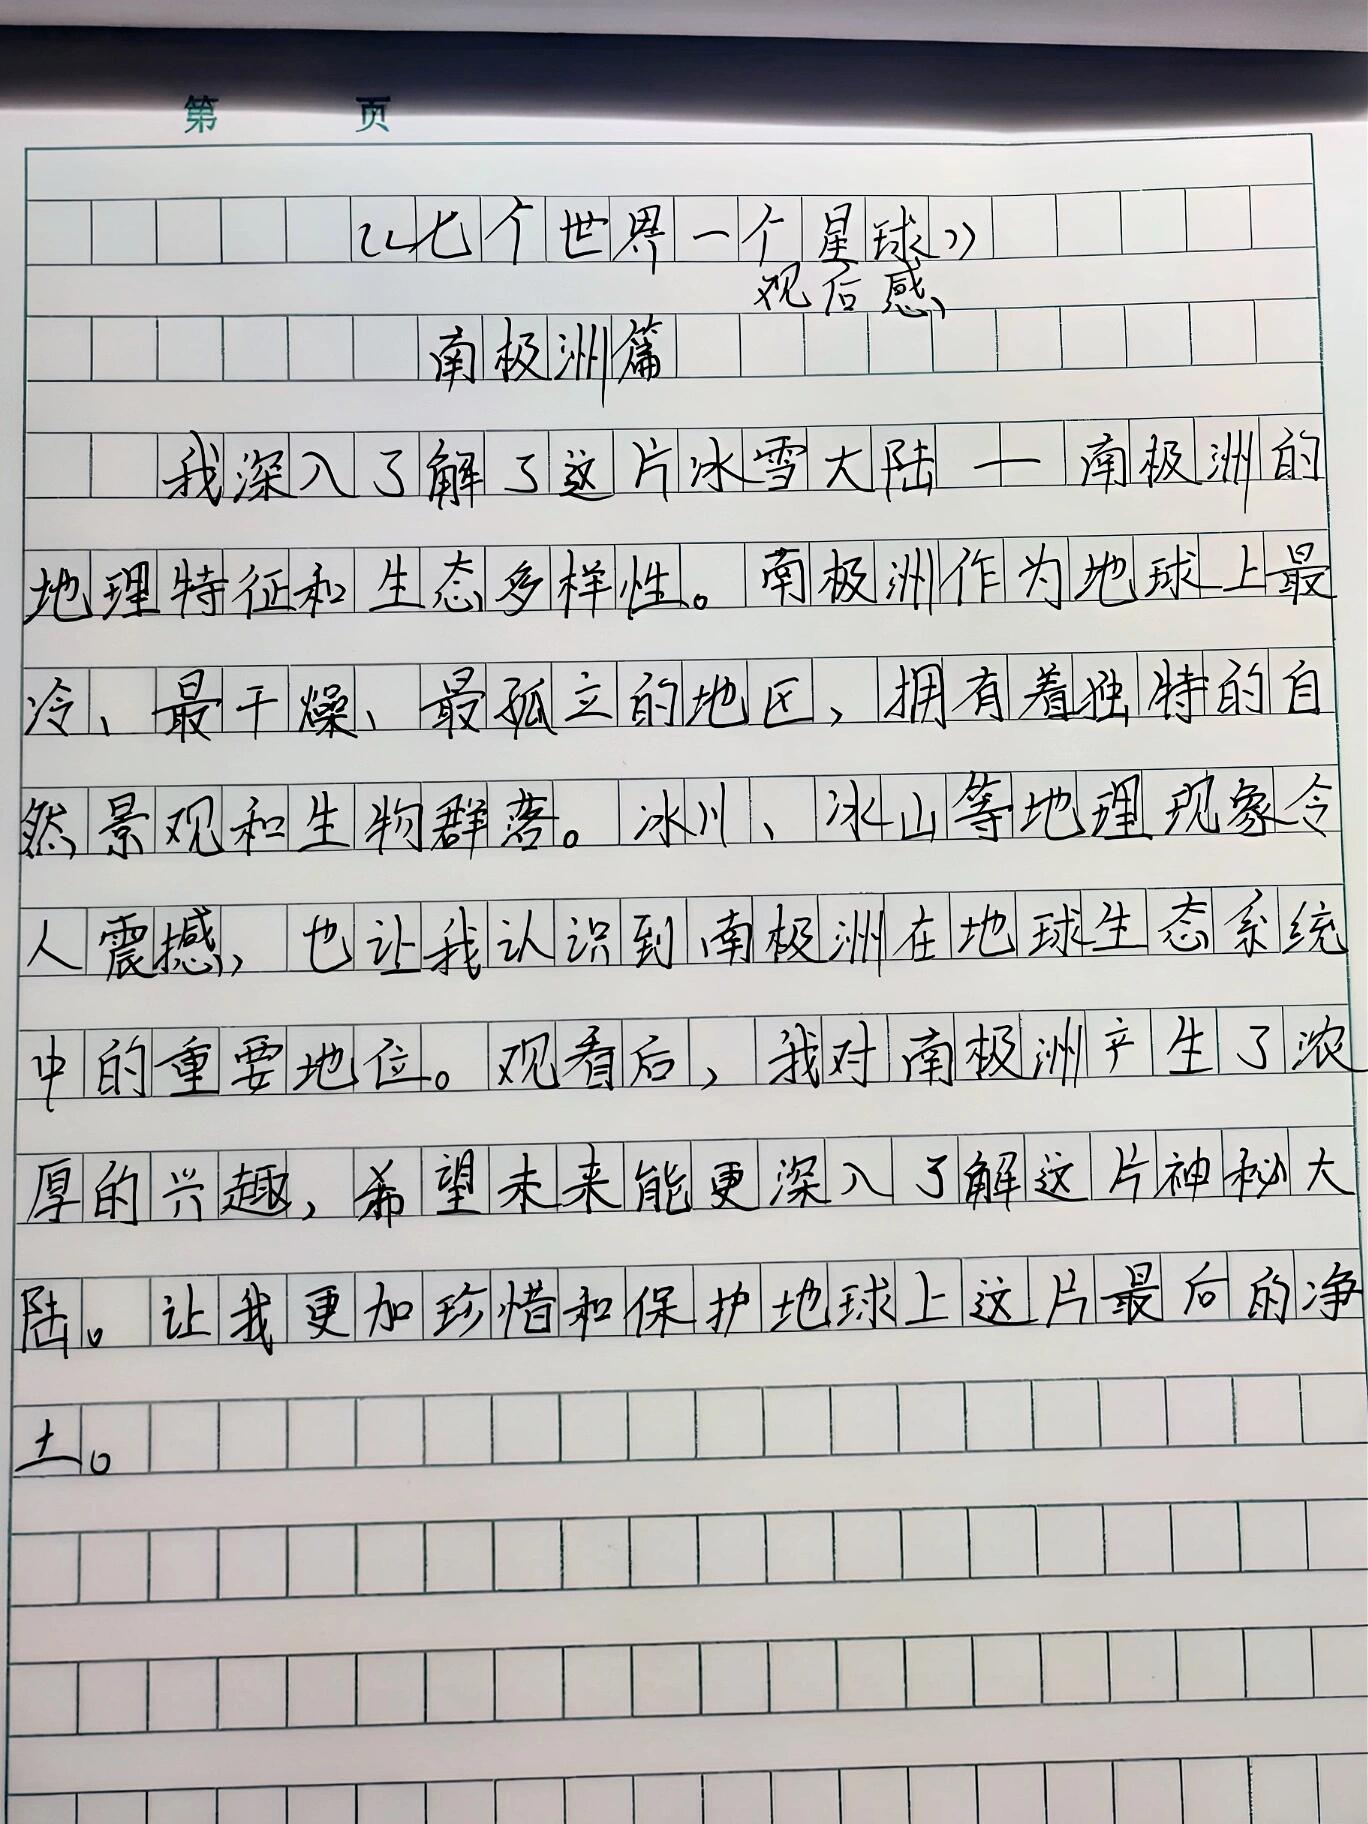 第 页
《七个世界一个星球》
观后感
南极洲篇
我深入了解了这片冰雪大陆—南极洲的
地理特征和生态多样性。南极洲作为地球上最
冷、最干燥、最孤立的地区，拥有着独特的自
然景观和生物群落。冰川、冰山等地理现象令
人震撼，也让我认识到南极洲在地球生态系统
中的重要地位。观看后，我对南极洲产生了浓
厚的兴趣，希望未来能更深入了解这片神秘大
陆。让我更加珍惜和保护地球上这片最后的净
土。